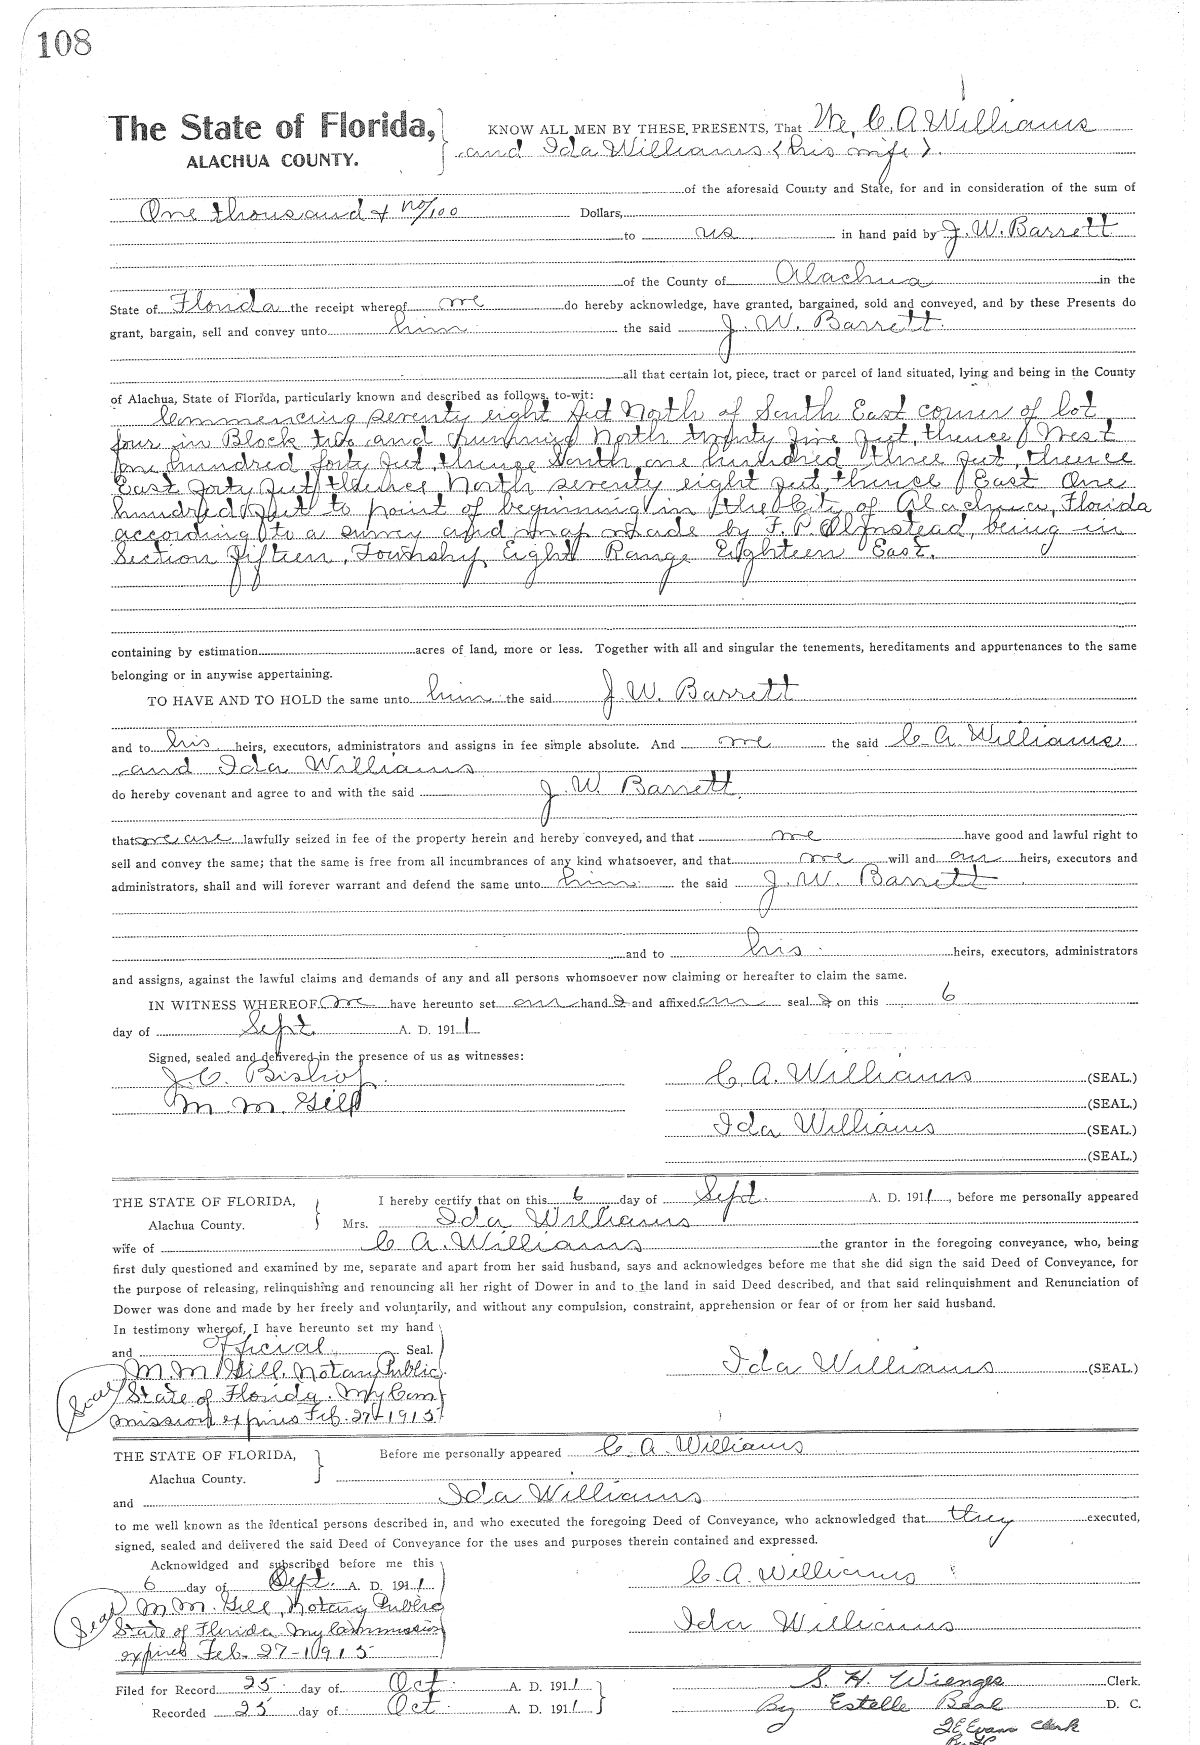 108
The State of Florida, KNOW ALL MEN BY THESE PRESENTS, That We, C. A. Williams
ALACHUA COUNTY. and Ida Williams (his wife).
of the aforesaid County and State, for and in consideration of the sum of
One thousand & no/100 Dollars,
to us in hand paid by J. W. Barrett
of the County of Alachua in the
State of Florida the receipt whereof we do hereby acknowledge, have granted, bargained, sold and conveyed, and by these Presents do
grant, bargain, sell and convey unto him the said J. W. Barrett.
all that certain lot, piece, tract or parcel of land situated, lying and being in the County
of Alachua, State of Florida, particularly known and described as follows, to-wit:
Commencing seventy eight feet North of South East corner of lot
four in Block two and running North twenty five feet, thence West
one hundred forty feet, thence South one hundred three feet, thence
East forty feet thence North seventy eight feet thence East One
hundred feet to point of beginning in the City of Alachua, Florida
according to a survey and map made by F. P. Olmstead, being in
Section Fifteen, Township Eight Range Eighteen East.
containing by estimation acres of land, more or less. Together with all and singular the tenements, hereditaments and appurtenances to the same
belonging or in anywise appertaining.
TO HAVE AND TO HOLD the same unto him the said J. W. Barrett
and to his heirs, executors, administrators and assigns in fee simple absolute. And we the said C. A. Williams
and Ida Williams
do hereby covenant and agree to and with the said J. W. Barrett,
that we are lawfully seized in fee of the property herein and hereby conveyed, and that we have good and lawful right to
sell and convey the same; that the same is free from all incumbrances of any kind whatsoever, and that we will and our heirs, executors and
administrators, shall and will forever warrant and defend the same unto him the said J. W. Barrett
and to his heirs, executors, administrators
and assigns, against the lawful claims and demands of any and all persons whomsoever now claiming or hereafter to claim the same.
IN WITNESS WHEREOF we have hereunto set our hand s and affixed our seal s on this 6
day of Sept. A. D. 1911
Signed, sealed and delivered in the presence of us as witnesses:
J. C. Bishop. C. A. Williams (SEAL.)
M. M. Gill (SEAL.)
Ida Williams (SEAL.)
(SEAL.)
THE STATE OF FLORIDA, I hereby certify that on this 6 day of Sept. A. D. 1911, before me personally appeared
Alachua County. Mrs. Ida Williams
wife of C. A. Williams the grantor in the foregoing conveyance, who, being
first duly questioned and examined by me, separate and apart from her said husband, says and acknowledges before me that she did sign the said Deed of Conveyance, for
the purpose of releasing, relinquishing and renouncing all her right of Dower in and to the land in said Deed described, and that said relinquishment and Renunciation of
Dower was done and made by her freely and voluntarily, and without any compulsion, constraint, apprehension or fear of or from her said husband.
In testimony whereof, I have hereunto set my hand
and official Seal.
M. M. Gill. Notary Public Ida Williams (SEAL.)
Seal State of Florida. My Com
mission expires Feb. 27th 1915
THE STATE OF FLORIDA, Before me personally appeared C. A. Williams
Alachua County.
and Ida Williams
to me well known as the identical persons described in, and who executed the foregoing Deed of Conveyance, who acknowledged that they executed,
signed, sealed and delivered the said Deed of Conveyance for the uses and purposes therein contained and expressed.
Acknowldged and subscribed before me this
6 day of Sept. A. D. 1911 C. A. Williams
Seal M. M. Gill, Notary Public
State of Florida. My Commission Ida Williams
expires Feb. 27-1915
Filed for Record 25 day of Oct. A. D. 1911 S. H. Wienges Clerk.
Recorded 25 day of Oct. A. D. 1911 By Estelle Beal D. C.
Evans Clerk